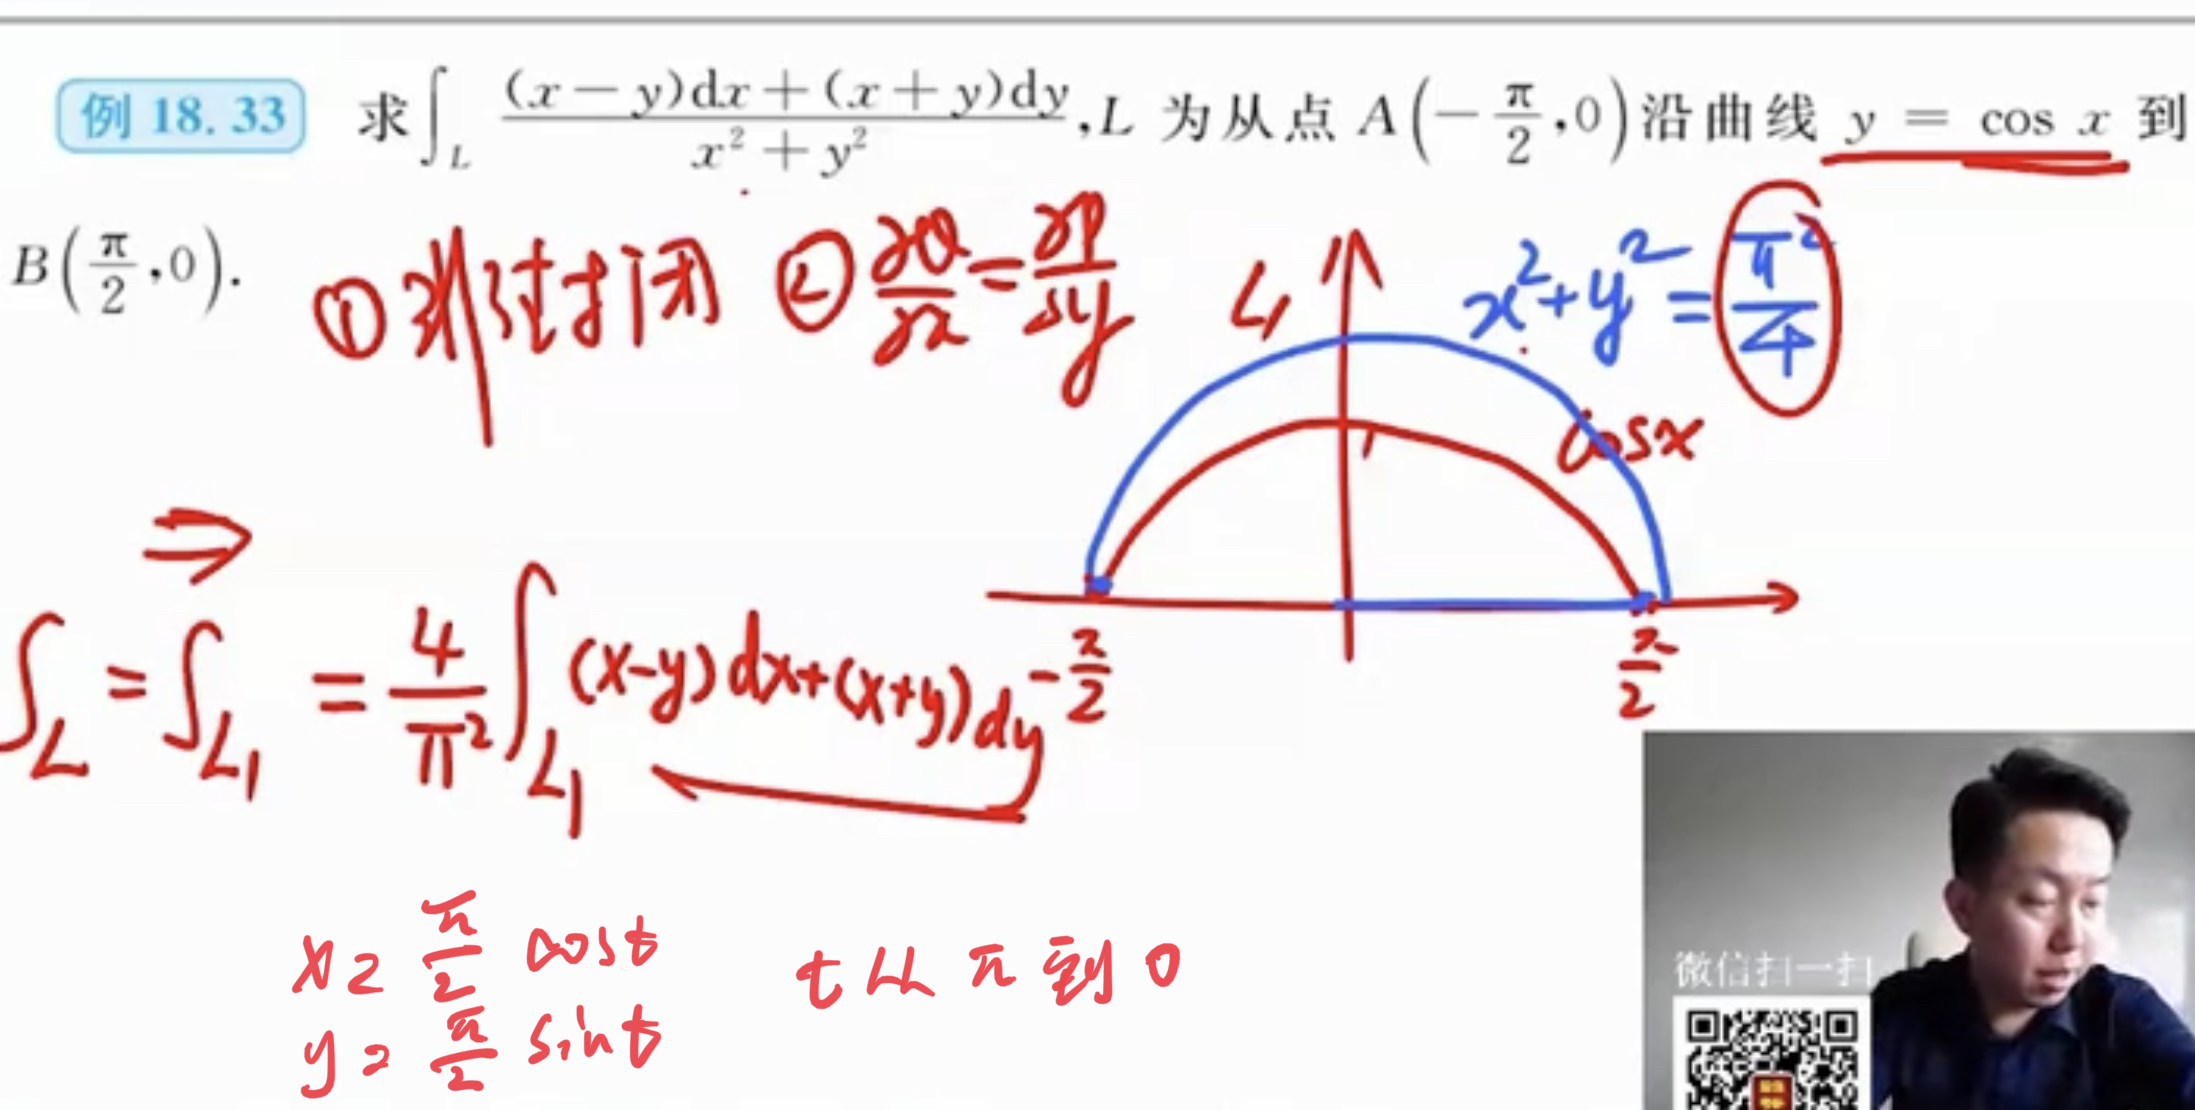 例 18.33 求∫_L ((x－y)dx＋(x＋y)dy)/(x²＋y²), L 为从点 A(－π/2,0)沿曲线 y = cos x 到
B(π/2,0).
① 封闭 ② ∂Q/∂x=∂P/∂y
L₁ x²+y²=π²/4
cosx
1
⇒
∫_L = ∫_L₁ = 4/π² ∫_L₁ (x-y)dx+(x+y)dy
-π/2 π/2
x= π/2 cost t从 π 到 0
y= π/2 sint
微信扫一扫